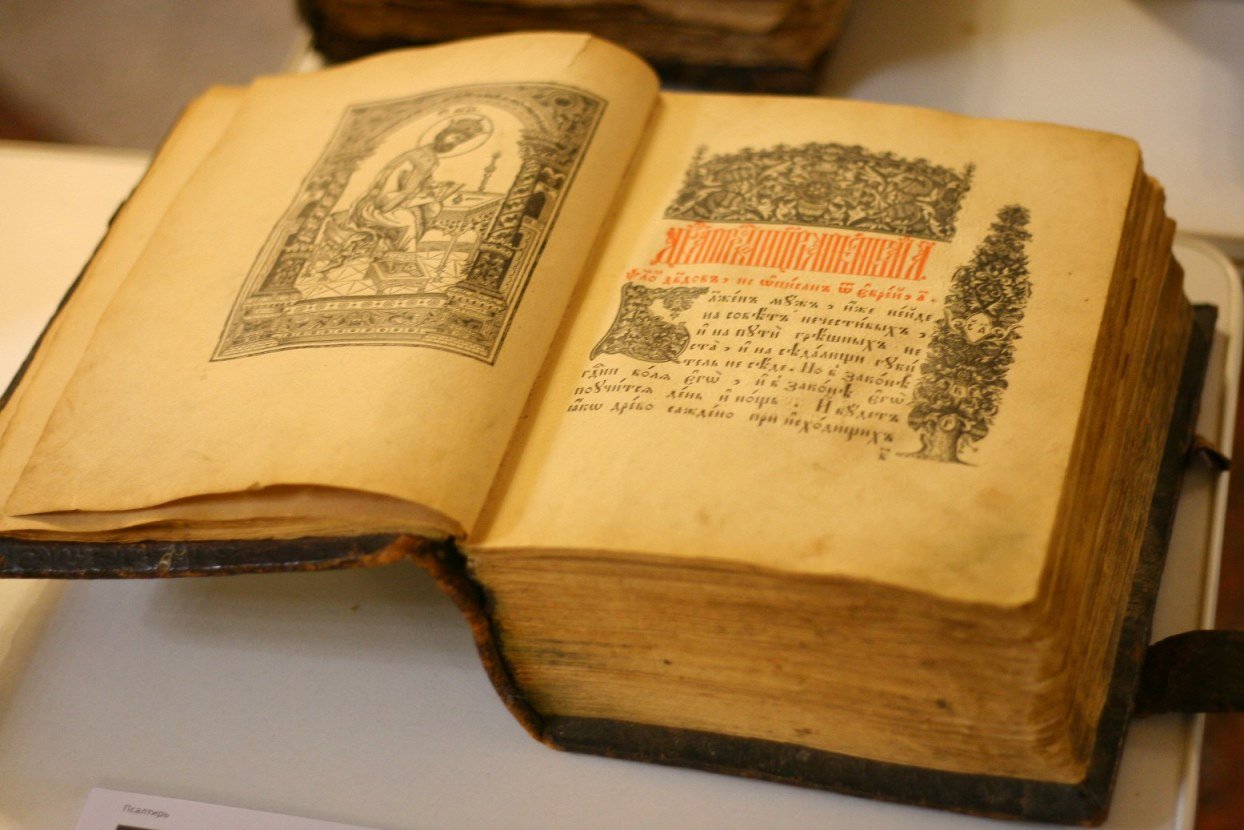 ѱало́мъ дв҃довъ, не ѿпи́санъ ѿ є҆врє́й, а҃.
Бл҃же́нъ мꙋ́жъ, и҆́же не и́де
на совѣ́тъ нечести́выхъ,
и҆ на пꙋти̑ грѣ́шныхъ не
ста̀, и҆ на сѣда́лищи гꙋби́
тель не сѣ́де. Но в̾ зако́нѣ
гдⷭ҇ни во́лѧ є҆гѡ̀, и҆ в̾ зако́нѣ є҆гѡ̀
поꙋчи́тсѧ де́нь и҆ но́щь. И бꙋ́детъ
ꙗ҆́кѡ дре́во сажде́но при и҆схо́дищихъ
Псалтирь